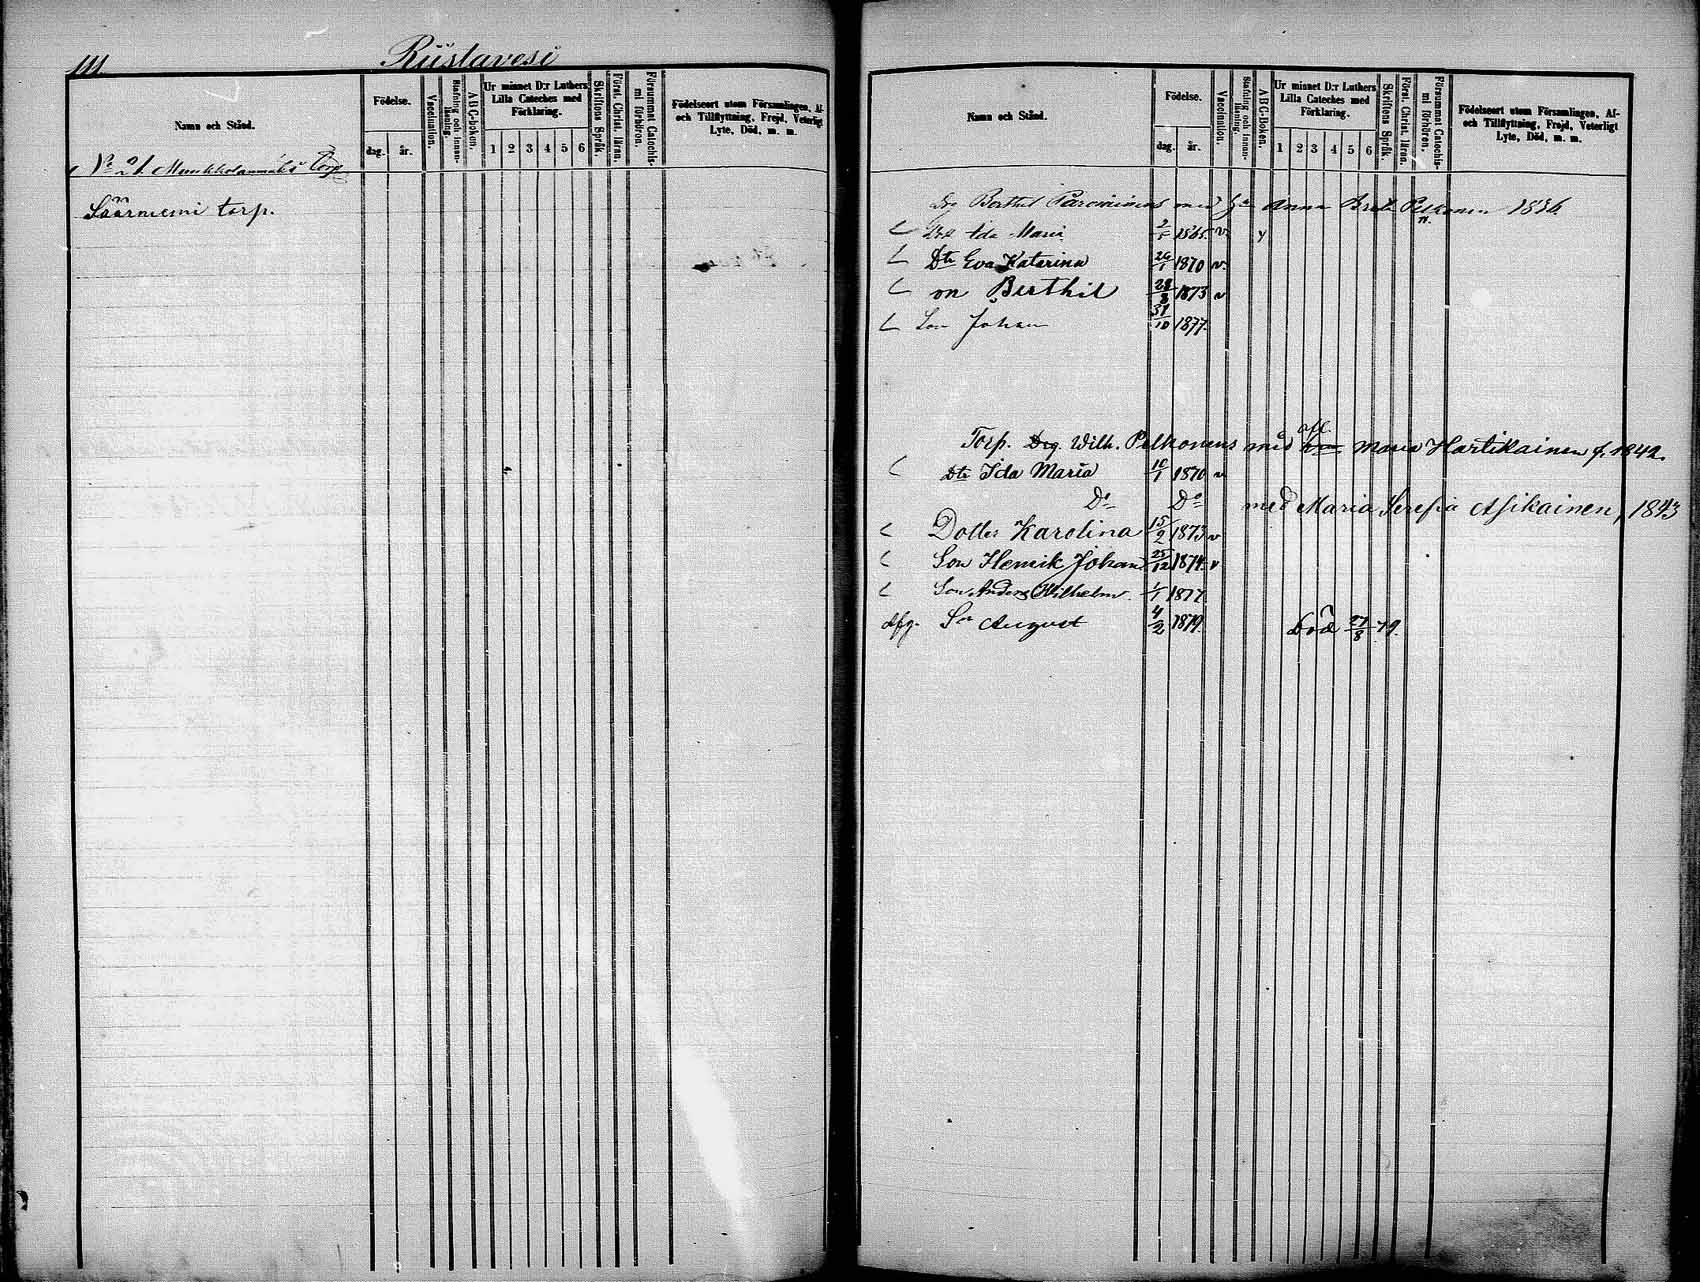 111.
Riistavesi
Namn och Stånd.
Födelse.
dag.
år.
Vaccination.
Stafning och innan-läsning.
A B C-boken.
Ur minnet D:r Luthers Lilla Cateches med Förklaring.
1 2 3 4 5 6
Skriftens Språk.
Först. Christ. läran.
Försummat Catechis-mi förhören.
Födelseort utom Församlingen, Af- och Tillflyttning, Frejd, Veterligt Lyte, Död, m. m.
No 21. Munkkolanmäki Torp
Saarniemi torp.
Namn och Stånd.
Födelse.
dag.
år.
Vaccination.
Stafning och innan-läsning.
A B C-Boken.
Ur minnet D:r Luthers Lilla Cateches med Förklaring.
1 2 3 4 5 6
Skriftens Språk.
Först. Christ. läran.
Försummat Catechis-mi förhören.
Födelseort utom Församlingen, Af- och Tillflyttning, Frejd, Veterligt Lyte, Död, m. m.
Drg Berthil med Anna Brita Pelkonen 1836.
Ida Maria 1865. v y
Dtr Eva Katarina 26/1 1870 v.
on Berthil 28/8 1873 v
Son Johan 31/10 1877.
Torp. Drg. Wilh. Pelkonens med afl. Maria Hartikainen f. 1842.
Dtr Ida Maria 10/1 1870 v
Do Do med Maria Serefia Asikainen, 1843
Dotter Karolina 15/2 1873 v
Son Henrik Johan 25/12 1874. v
Son Anders Wilhelm. 1/1 1877
afg. Son August 4/2 1879. Död 27/8 79.